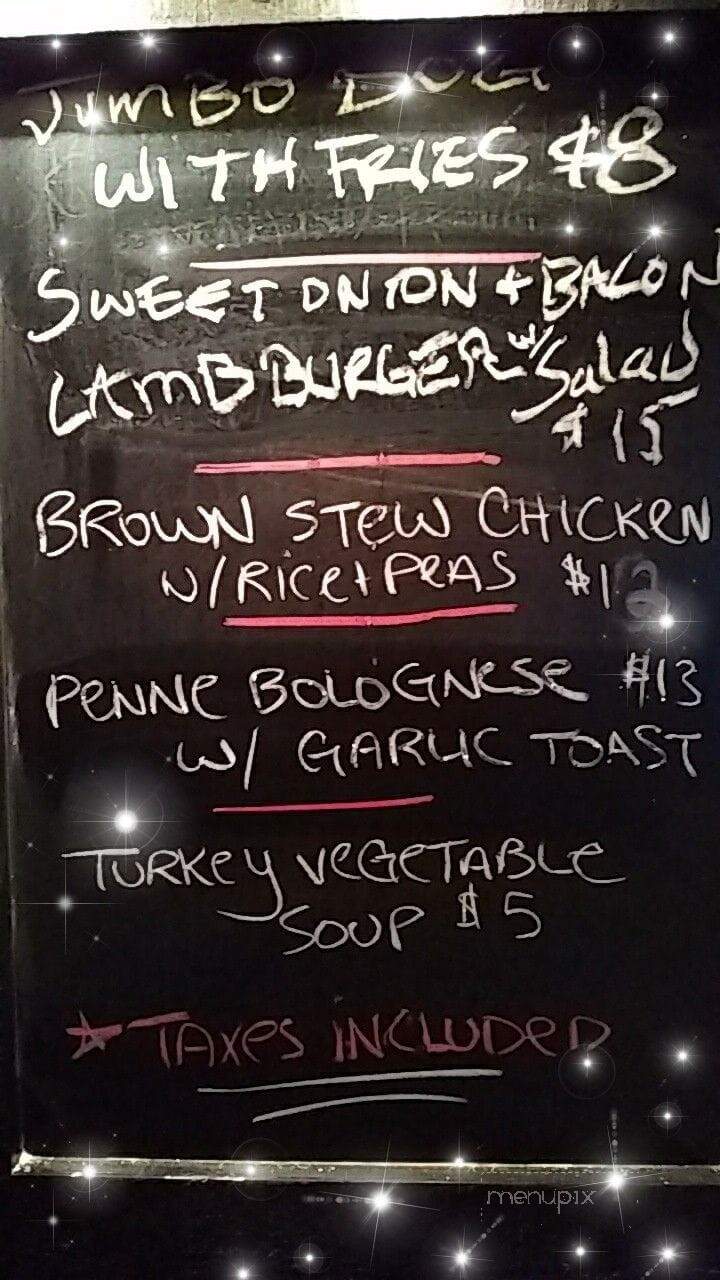 JUMBO DOG
WITH FRIES $8
SWEET ONION + BACON
LAMB BURGER w/ Salad
$15
BROWN STEW CHICKEN
W/RICE+PEAS
PENNE BOLOGNESE $13
W/ GARLIC TOAST
TURKEY VEGETABLE
SOUP $5
* TAXES INCLUDED
menupix